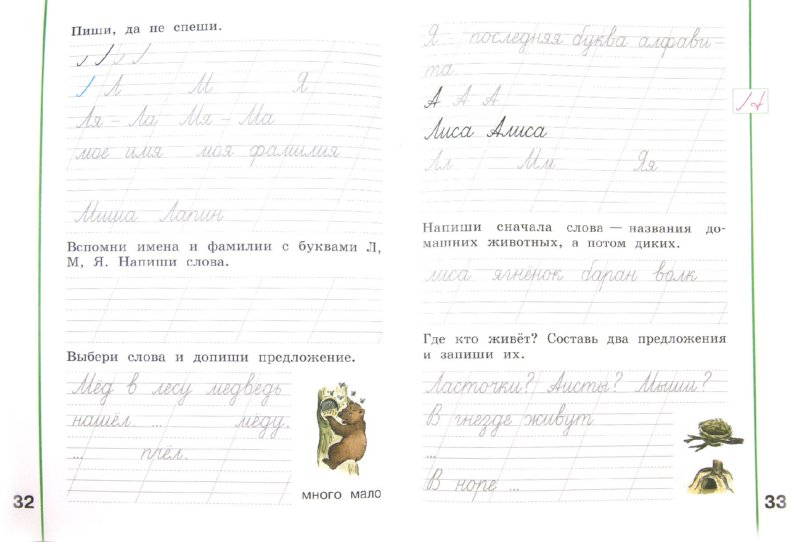 Пиши, да не спеши.
Л М Я
Ля – Ла Мя – Ма
мое имя моя фамилия
Миша Лапин
Вспомни имена и фамилии с буквами Л,
М, Я. Напиши слова.
Выбери слова и допиши предложение.
Мёд в лесу медведь
нашёл ... мёду.
... пчёл.
много мало
32
Я – последняя буква алфави-
та.
А А А
Лиса Алиса
Лл Мм Яя
Напиши сначала слова — названия до-
машних животных, а потом диких.
лиса ягнёнок баран волк
Где кто живёт? Составь два предложения
и запиши их.
Ласточки? Аисты? Мыши?
В гнезде живут
...
В норе ...
33